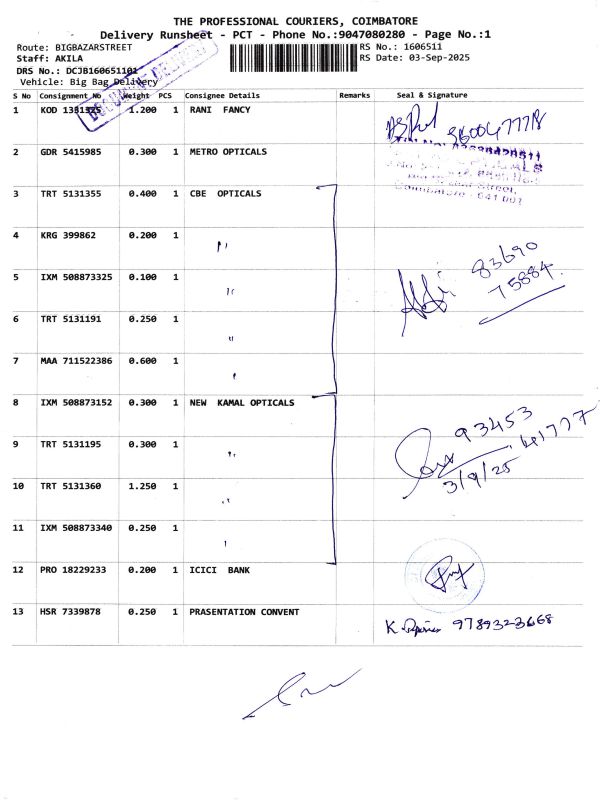 THE PROFESSIONAL COURIERS, COIMBATORE
Delivery Runsheet - PCT - Phone No.:9047080280 - Page No.:1
Route: BIGBAZARSTREET
Staff: AKILA
DRS No.: DCJB160651101
Vehicle: Big Bag Delivery
RS No.: 1606511
RS Date: 03-Sep-2025
S No Consignment No Weight PCS Consignee Details Remarks Seal & Signature
1 KOD 1.200 1 RANI FANCY
36004 77718
2 GDR 5415985 0.300 1 METRO OPTICALS
Coimbatore - 641 001
3 TRT 5131355 0.400 1 CBE OPTICALS
4 KRG 399862 0.200 1 "
5 IXM 508873325 0.100 1 "
83690
75884
6 TRT 5131191 0.250 1 "
7 MAA 711522386 0.600 1 "
8 IXM 508873152 0.300 1 NEW KAMAL OPTICALS
9 TRT 5131195 0.300 1 "
93453 41777
3/9/25
10 TRT 5131360 1.250 1 "
11 IXM 508873340 0.250 1 "
12 PRO 18229233 0.200 1 ICICI BANK
13 HSR 7339878 0.250 1 PRASENTATION CONVENT
K. 9789323668